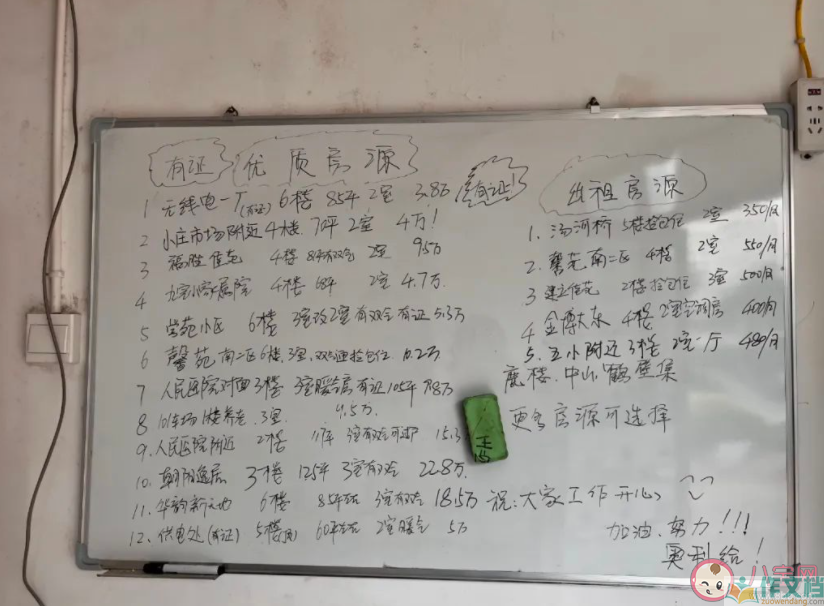 有证 优质房源
1 无线电一厂(有证) 6楼 85平 2室 3.8万
2 小庄市场附近 4楼 70平 2室 4万!
3 福胜佳苑 4楼 2室 95万
4 家属院 4楼 68平 2室 4.7万
5 莹苑小区 6楼 3室改2室有双气有证 5.3万
6 馨苑南二区6楼.3室.双气
7 人民医院对面3楼 3室暖气高 有证 105平 7.8万
8 1楼养老.3室. 4.5万
9. 人民医院附近 2楼 3室有双气可 15.3
10. 朝阳逸居 3楼 125平 3室有双气 22.8万
11. 华韵新天地 6楼 85平左右 3室有双气 18.5万
12. 供电处(有证) 5楼 60平左右 2室暖气 5万
有证!
出租房源
1. 汤河桥 5楼拎包住 2室 350/月
2. 馨苑南二区 4楼 2室 550/月
3 佳苑 2楼 拎包住 3室 500/月
4 金博大东 4楼 2室空调房 400/月
5. 五小附近 3楼 2室一厅 480/月
鹿楼.中山.鹤壁集
更多房源可选择
祝:大家工作开心
加油.努力!!!
奥利给!
八宝网
作文档
zuowendang.com